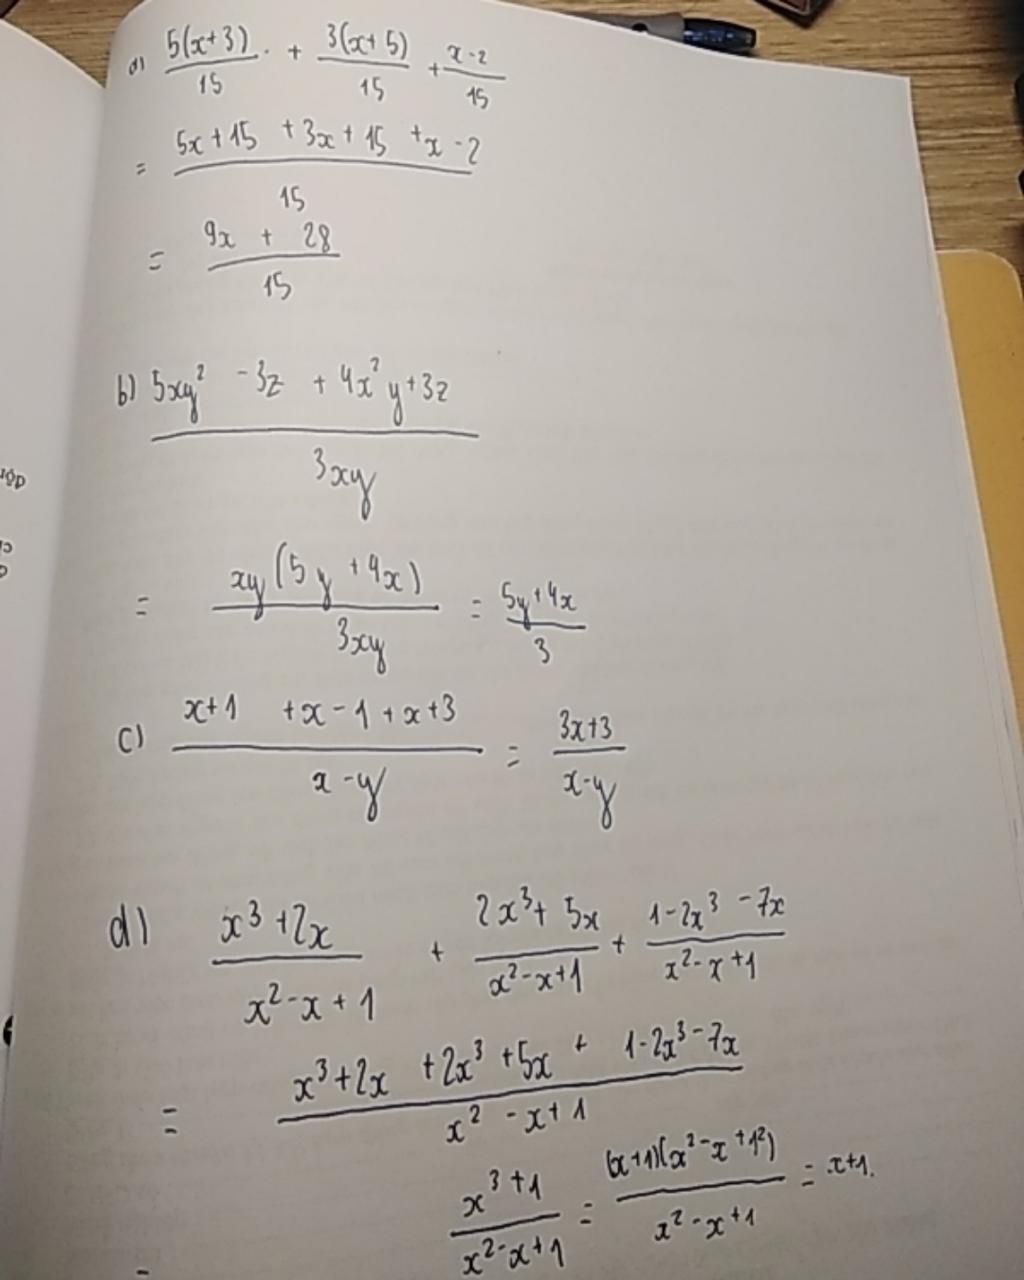 a) 5(x+3)/15 + 3(x+5)/15 + x-2/15
= 5x+15 +3x+15 +x-2/15
= 9x + 28/15
b) 5xy² -3z +4x²y+3z/3xy
= xy(5y+4x)/3xy = 5y+4x/3
c) x+1 +x-1+x+3/x-y = 3x+3/x-y
d) x³+2x/x²-x+1 + 2x³+5x/x²-x+1 + 1-2x³-7x/x²-x+1
= x³+2x +2x³+5x + 1-2x³-7x/x²-x+1
= x³+1/x²-x+1 = (x+1)(x²-x+1²)/x²-x+1 = x+1.